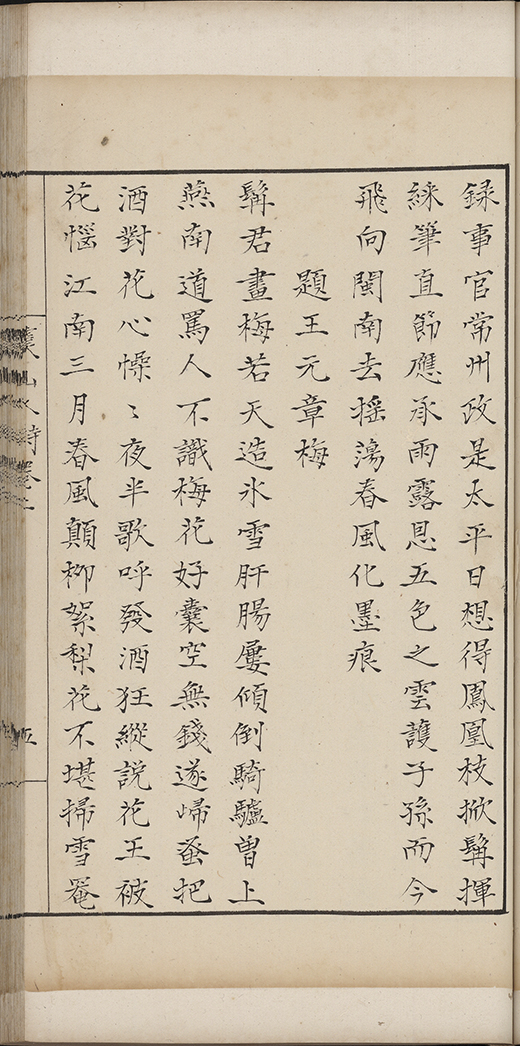 録事官常州政是太平日想得鳳凰枝掀髯揮
綵筆直節應承雨露恩五色之雲護子孫而今
飛向閩南去摇蕩春風化墨痕
題王元章梅
髯君畫梅若天造氷雪肝腸屢傾倒騎驢曽上
燕南道罵人不識梅花好囊空無錢遂歸蚤把
酒對花心慄〻夜半歌呼發酒狂縱說花王被
花惱江南三月春風顛栁絮梨花不堪掃雪菴
山人詩卷二
五